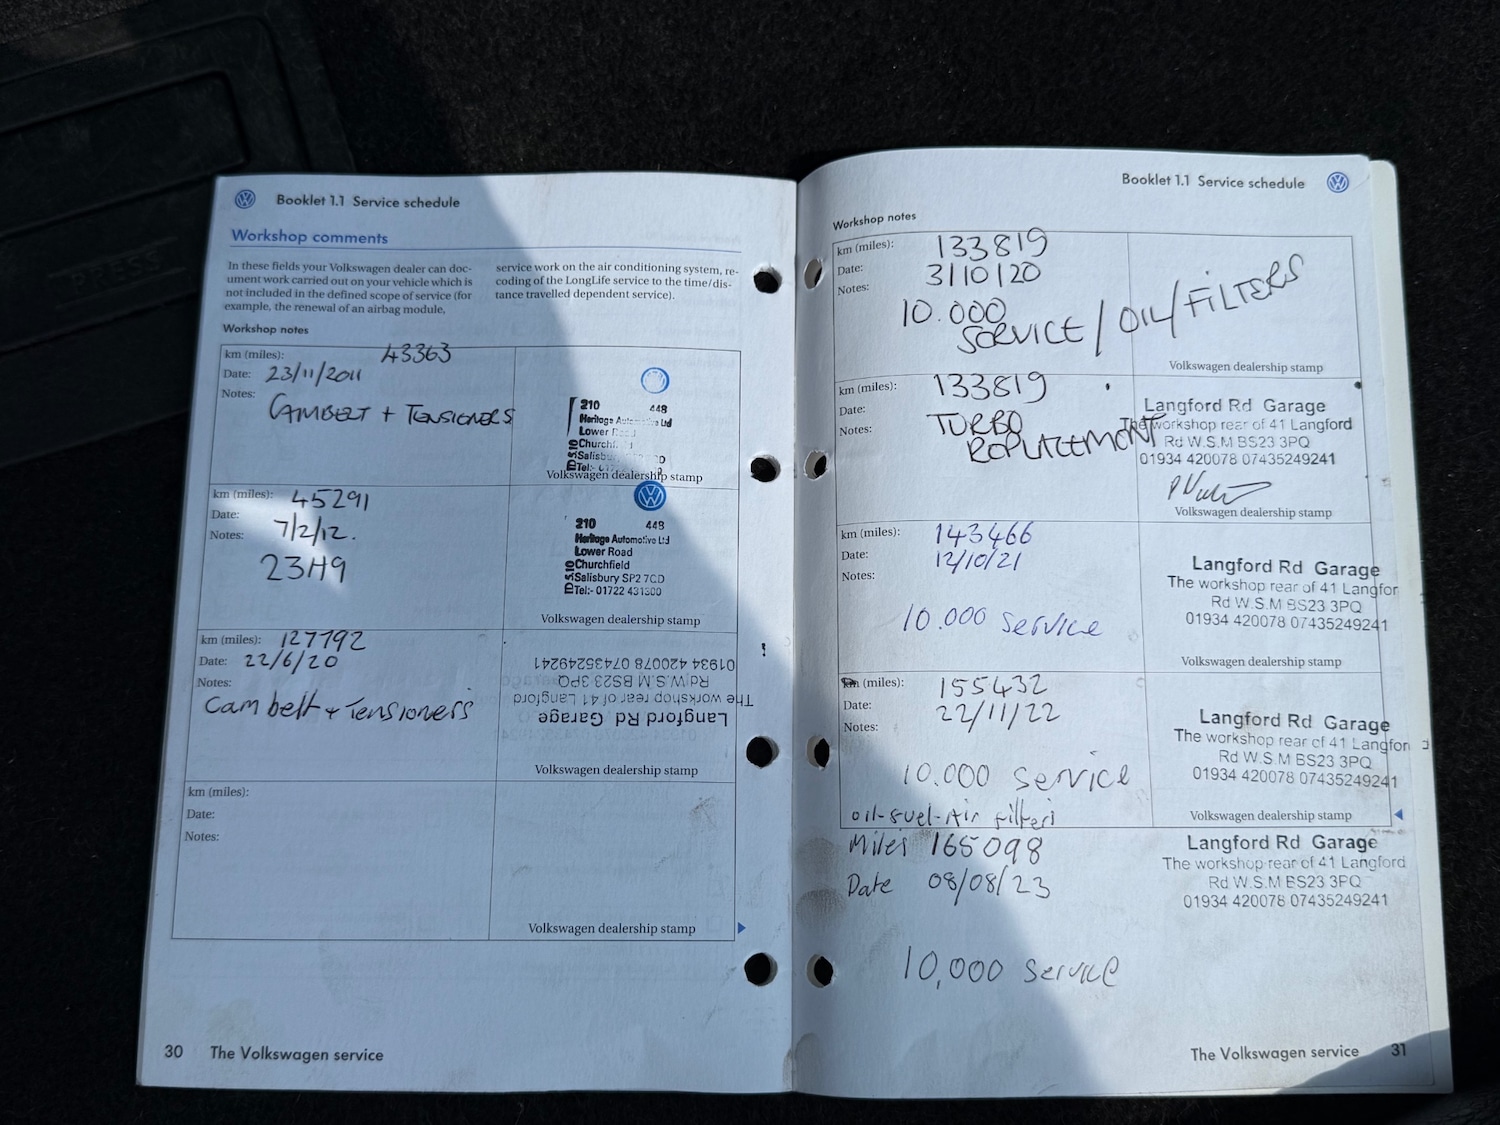 Booklet 1.1 Service schedule
Workshop comments
In these fields your Volkswagen dealer can doc-
ument work carried out on your vehicle which is
not included in the defined scope of service (for
example, the renewal of an airbag module,
service work on the air conditioning system, re-
coding of the LongLife service to the time/dis-
tance travelled dependent service).
Workshop notes
km (miles): 43363
Date: 23/11/2011
Notes: CAMBELT + TENSIONERS
210 448
Heritage Automotive Ltd
Lower
Churchfi
Salisbu
Tel:-
Volkswagen dealership stamp
km (miles): 45291
Date: 7/2/12.
Notes: 23H9
210 448
Heritage Automotive Ltd
Lower Road
Churchfield
Salisbury SP2 7CD
Tel:- 01722 431300
Volkswagen dealership stamp
km (miles): 127792
Date: 22/6/20
Notes:
Cam belt + Tensioners
Langford Rd Garage
The workshop rear of 41 Langford
Rd W.S.M BS23 3PQ
01934 420078 07435249241
Volkswagen dealership stamp
km (miles):
Date:
Notes:
Volkswagen dealership stamp
30 The Volkswagen service
Booklet 1.1 Service schedule
Workshop notes
km (miles): 133819
Date: 3/10/20
Notes:
10.000
SERVICE / OIL/FILTERS
Volkswagen dealership stamp
km (miles): 133819
Date:
Notes: TURBO
REPLACEMENT
Langford Rd Garage
The workshop rear of 41 Langford
Rd W.S.M BS23 3PQ
01934 420078 07435249241
Volkswagen dealership stamp
km (miles): 143466
Date: 12/10/21
Notes:
10.000 Service
Langford Rd Garage
The workshop rear of 41 Langfor
Rd W.S.M BS23 3PQ
01934 420078 07435249241
Volkswagen dealership stamp
km (miles): 155432
Date: 22/11/22
Notes:
10.000 Service
oil-fuel-Air filters
Langford Rd Garage
The workshop rear of 41 Langfor
Rd W.S.M BS23 3PQ
01934 420078 07435249241
Volkswagen dealership stamp
Miles 165098
Date 08/08/23
10,000 Service
Langford Rd Garage
The workshop rear of 41 Langford
Rd W.S.M BS23 3PQ
01934 420078 07435249241
The Volkswagen service 31